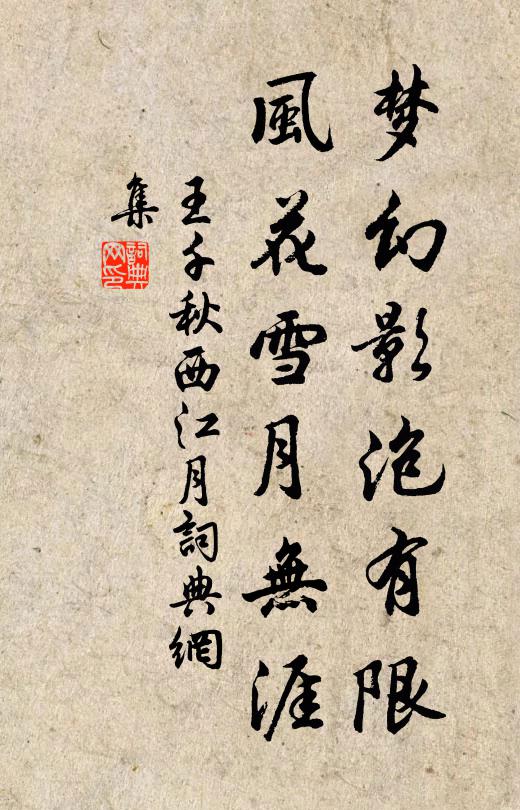 梦幻影泡有限
風花雪月無涯
王千秋西江月詞典網
集
詞典网印